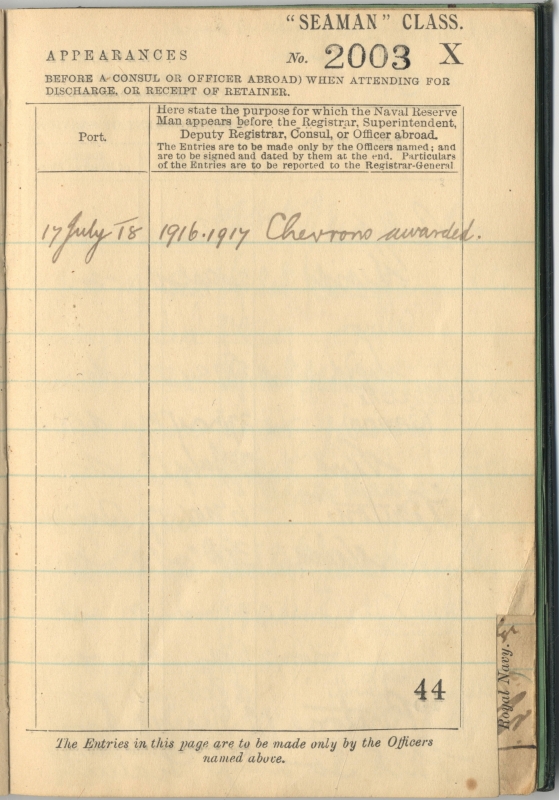 "SEAMAN" CLASS.
APPEARANCES No. 2003 X
BEFORE A CONSUL OR OFFICER ABROAD) WHEN ATTENDING FOR
DISCHARGE, OR RECEIPT OF RETAINER.
Port.
Here state the purpose for which the Naval Reserve
Man appears before the Registrar, Superintendent,
Deputy Registrar, Consul, or Officer abroad.
The Entries are to be made only by the Officers named; and
are to be signed and dated by them at the end. Particulars
of the Entries are to be reported to the Registrar-General
17 July 18 1916.1917 Chevrons awarded.
Royal Navy.
44
The Entries in this page are to be made only by the Officers
named above.